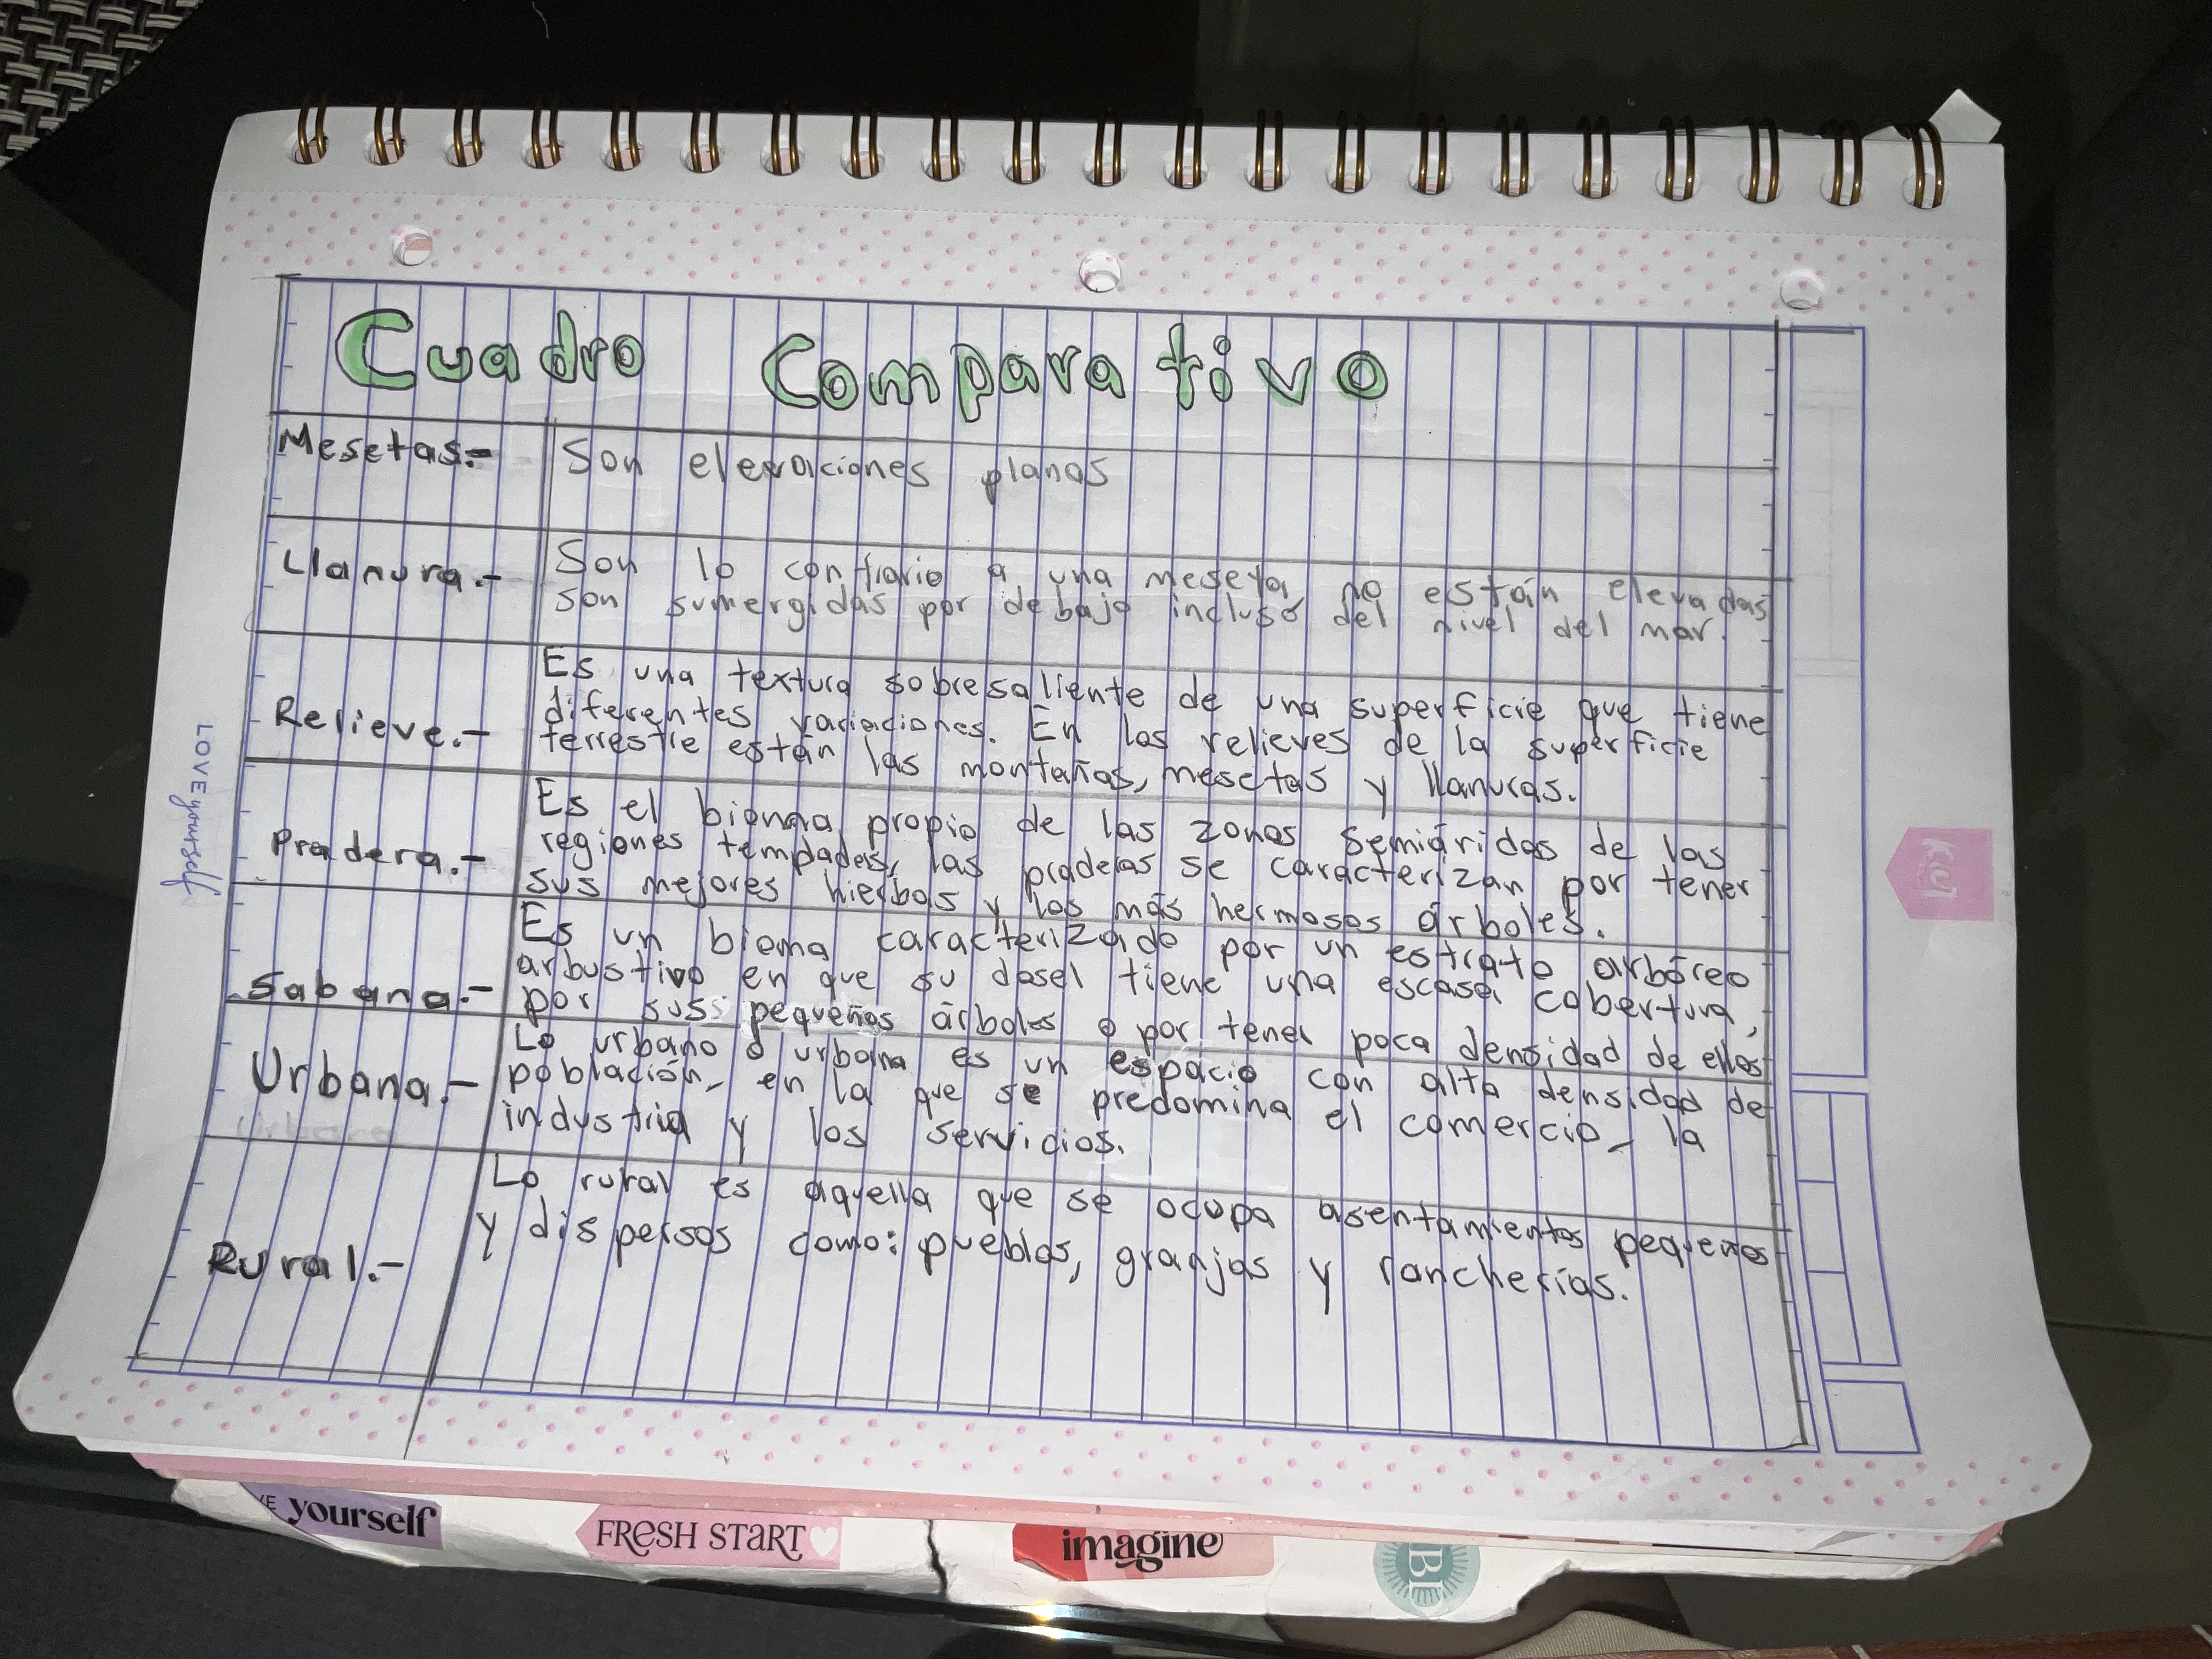 Cuadro Comparativo
Mesetas.-
Son elevaciones planas
Llanura.-
Son lo contrario a una meseta, no están elevadas
son sumergidas por debajo incluso del nivel del mar.
Relieve.-
Es una textura sobresaliente de una superficie que tiene
diferentes variaciones. En los relieves de la superficie
terrestre están las montañas, mesetas y llanuras.
Pradera.-
Es el bioma propio de las zonas semiáridas de las
regiones templadas, las praderas se caracterizan por tener
sus mejores hierbas y los más hermosos árboles.
Sabana.-
Es un bioma caracterizado por un estrato arbóreo
arbustivo en que su dosel tiene una escasa cobertura,
por sus pequeños árboles o por tener poca densidad de ellos
Urbana.-
Lo urbano o urbana es un espacio con alta densidad de
población, en la que se predomina el comercio, la
industria y los servicios.
Rural.-
Lo rural es aquella que se ocupa asentamientos pequeños
y dispersos como: pueblos, granjas y rancherías.
LOVE yourself
yourself
FRESH START
imagine